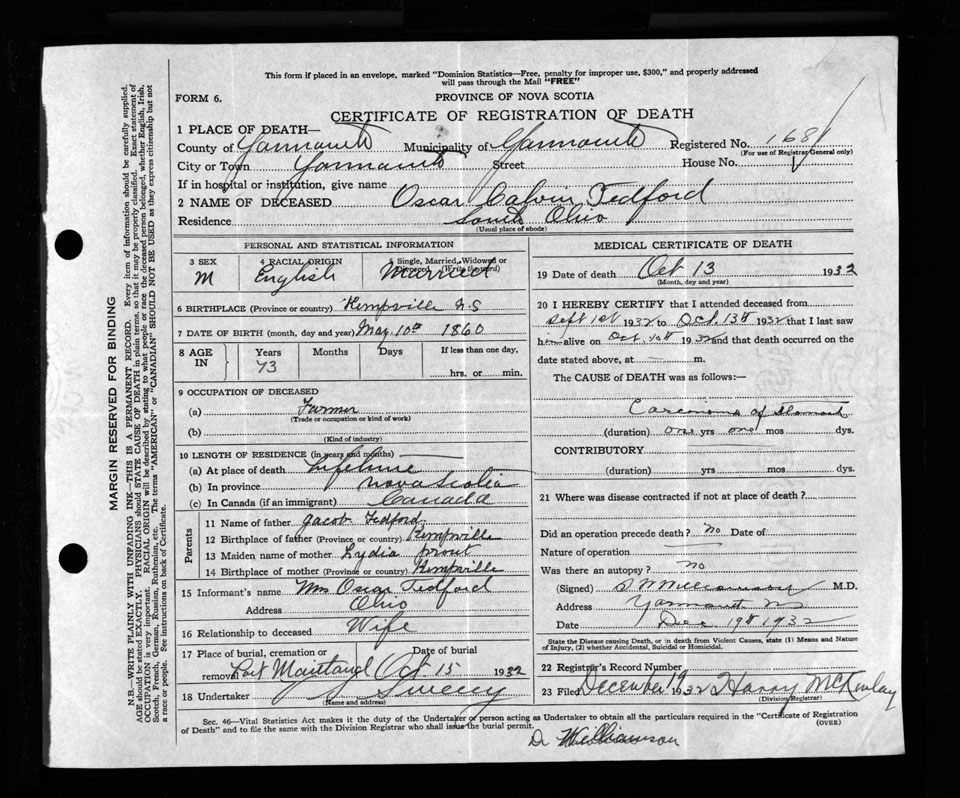 This form if placed in an envelope, marked "Dominion Statistics—Free, penalty for improper use, $300," and properly addressed
will pass through the Mail "FREE"
FORM 6.
PROVINCE OF NOVA SCOTIA
CERTIFICATE OF REGISTRATION OF DEATH
1 PLACE OF DEATH—
County of Yarmouth Municipality of Yarmouth Registered No. 1681
(For use of Registrar General only)
City or Town Yarmouth Street House No.
If in hospital or institution, give name
2 NAME OF DECEASED Oscar Calvin Tedford
Residence South Ohio
(Usual place of abode)
PERSONAL AND STATISTICAL INFORMATION
3 SEX M
4 RACIAL ORIGIN English
5 Single, Married, Widowed or Divorced (Write the word) Married
6 BIRTHPLACE (Province or country) Kempville N.S
7 DATE OF BIRTH (month, day and year) May 10th 1860
8 AGE IN Years Months Days If less than one day,
73 hrs. or min.
9 OCCUPATION OF DECEASED
(a) Farmer
(Trade or occupation or kind of work)
(b)
(Kind of industry)
10 LENGTH OF RESIDENCE (in years and months)
(a) At place of death Lifetime
(b) In province Nova Scotia
(c) In Canada (if an immigrant) Canada
Parents
11 Name of father Jacob Tedford
12 Birthplace of father (Province or country) Kempville
13 Maiden name of mother Lydia Prout
14 Birthplace of mother (Province or country) Kempville
15 Informant's name Mrs Oscar Tedford
Address Ohio
16 Relationship to deceased Wife
17 Place of burial, cremation or removal Date of burial
Port Maitland Oct 15 1932
18 Undertaker Sweeny
(Name and address)
MEDICAL CERTIFICATE OF DEATH
19 Date of death Oct 13 1932
(Month, day and year)
20 I HEREBY CERTIFY that I attended deceased from
Sept 1st 1932 to Oct. 13th 1932 that I last saw
h alive on Oct. 1932 and that death occurred on the
date stated above, at — m.
The CAUSE of DEATH was as follows:—
Carcinoma of Stomach
(duration) one yrs one mos dys.
CONTRIBUTORY
(duration) yrs mos dys.
21 Where was disease contracted if not at place of death?
Did an operation precede death? No Date of
Nature of operation
Was there an autopsy? No
(Signed) Williamson M.D.
Address Yarmouth NS
Date Dec 19th 1932
State the Disease causing Death, or in death from Violent Causes, state (1) Means and Nature
of Injury, (2) whether Accidental, Suicidal or Homicidal.
22 Registrar's Record Number
23 Filed December 19 1932 Harry McKinlay
(Division Registrar)
Sec. 46—Vital Statistics Act makes it the duty of the Undertaker or person acting as Undertaker to obtain all the particulars required in the "Certificate of Registration
of Death" and to file the same with the Division Registrar who shall issue the burial permit.
(OVER)
Dr Williamson
MARGIN RESERVED FOR BINDING
N.B.—WRITE PLAINLY WITH UNFADING INK—THIS IS A PERMANENT RECORD. Every item of information should be carefully supplied.
AGE should be stated EXACTLY. PHYSICIANS should STATE CAUSE OF DEATH in plain terms, so that it may be properly classified. Exact statement of
OCCUPATION is very important. RACIAL ORIGIN will be described by stating to what people or race the deceased person belonged, whether English, Irish,
Scotch, French, German, Russian, Ruthenian, etc. The terms "AMERICAN" or "CANADIAN" SHOULD NOT BE USED as they express citizenship but not
a race or people. See instructions on back of Certificate.